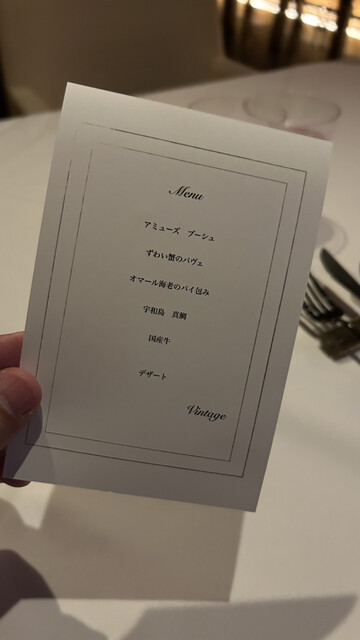 Menu
アミューズ ブーシュ
ずわい蟹のパヴェ
オマール海老のパイ包み
宇和島 真鯛
国産牛
デザート
Vintage